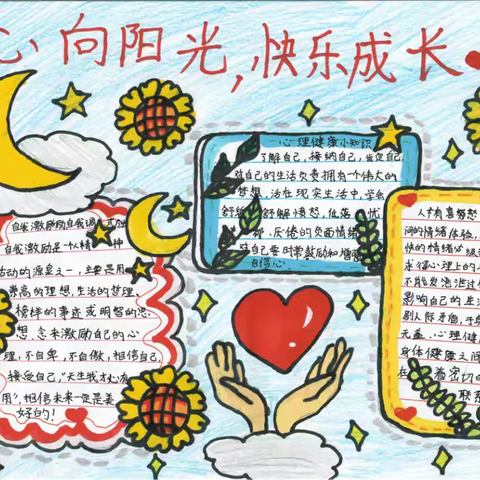 心向阳光,快乐成长
心理健康小知识
了解自己,接纳自己,肯定自己,
对自己的生活负责拥有个伟大的
梦想,活在现实生活中,学会
舒解愤怒,低落,忧
厌倦的负面情绪
对自己要时常鼓励和增强
自信心
自我激励
自我激励是一个人精神
活动的源泉之一,主要是用
崇高的理想,生活的哲理,
榜样的事迹或明智的思
想,念来激励自己的心
理,不自卑,不自傲,相信自己,
接受自己,“天生我才必有
用”,相信未来一定是美
好的!
人有喜怒
间的情绪体验,
快的情绪
求得心理上的
不能发泄
影响自己的生
别人际矛盾,
无益,心理健
身体健康之间
在着密切的
联系